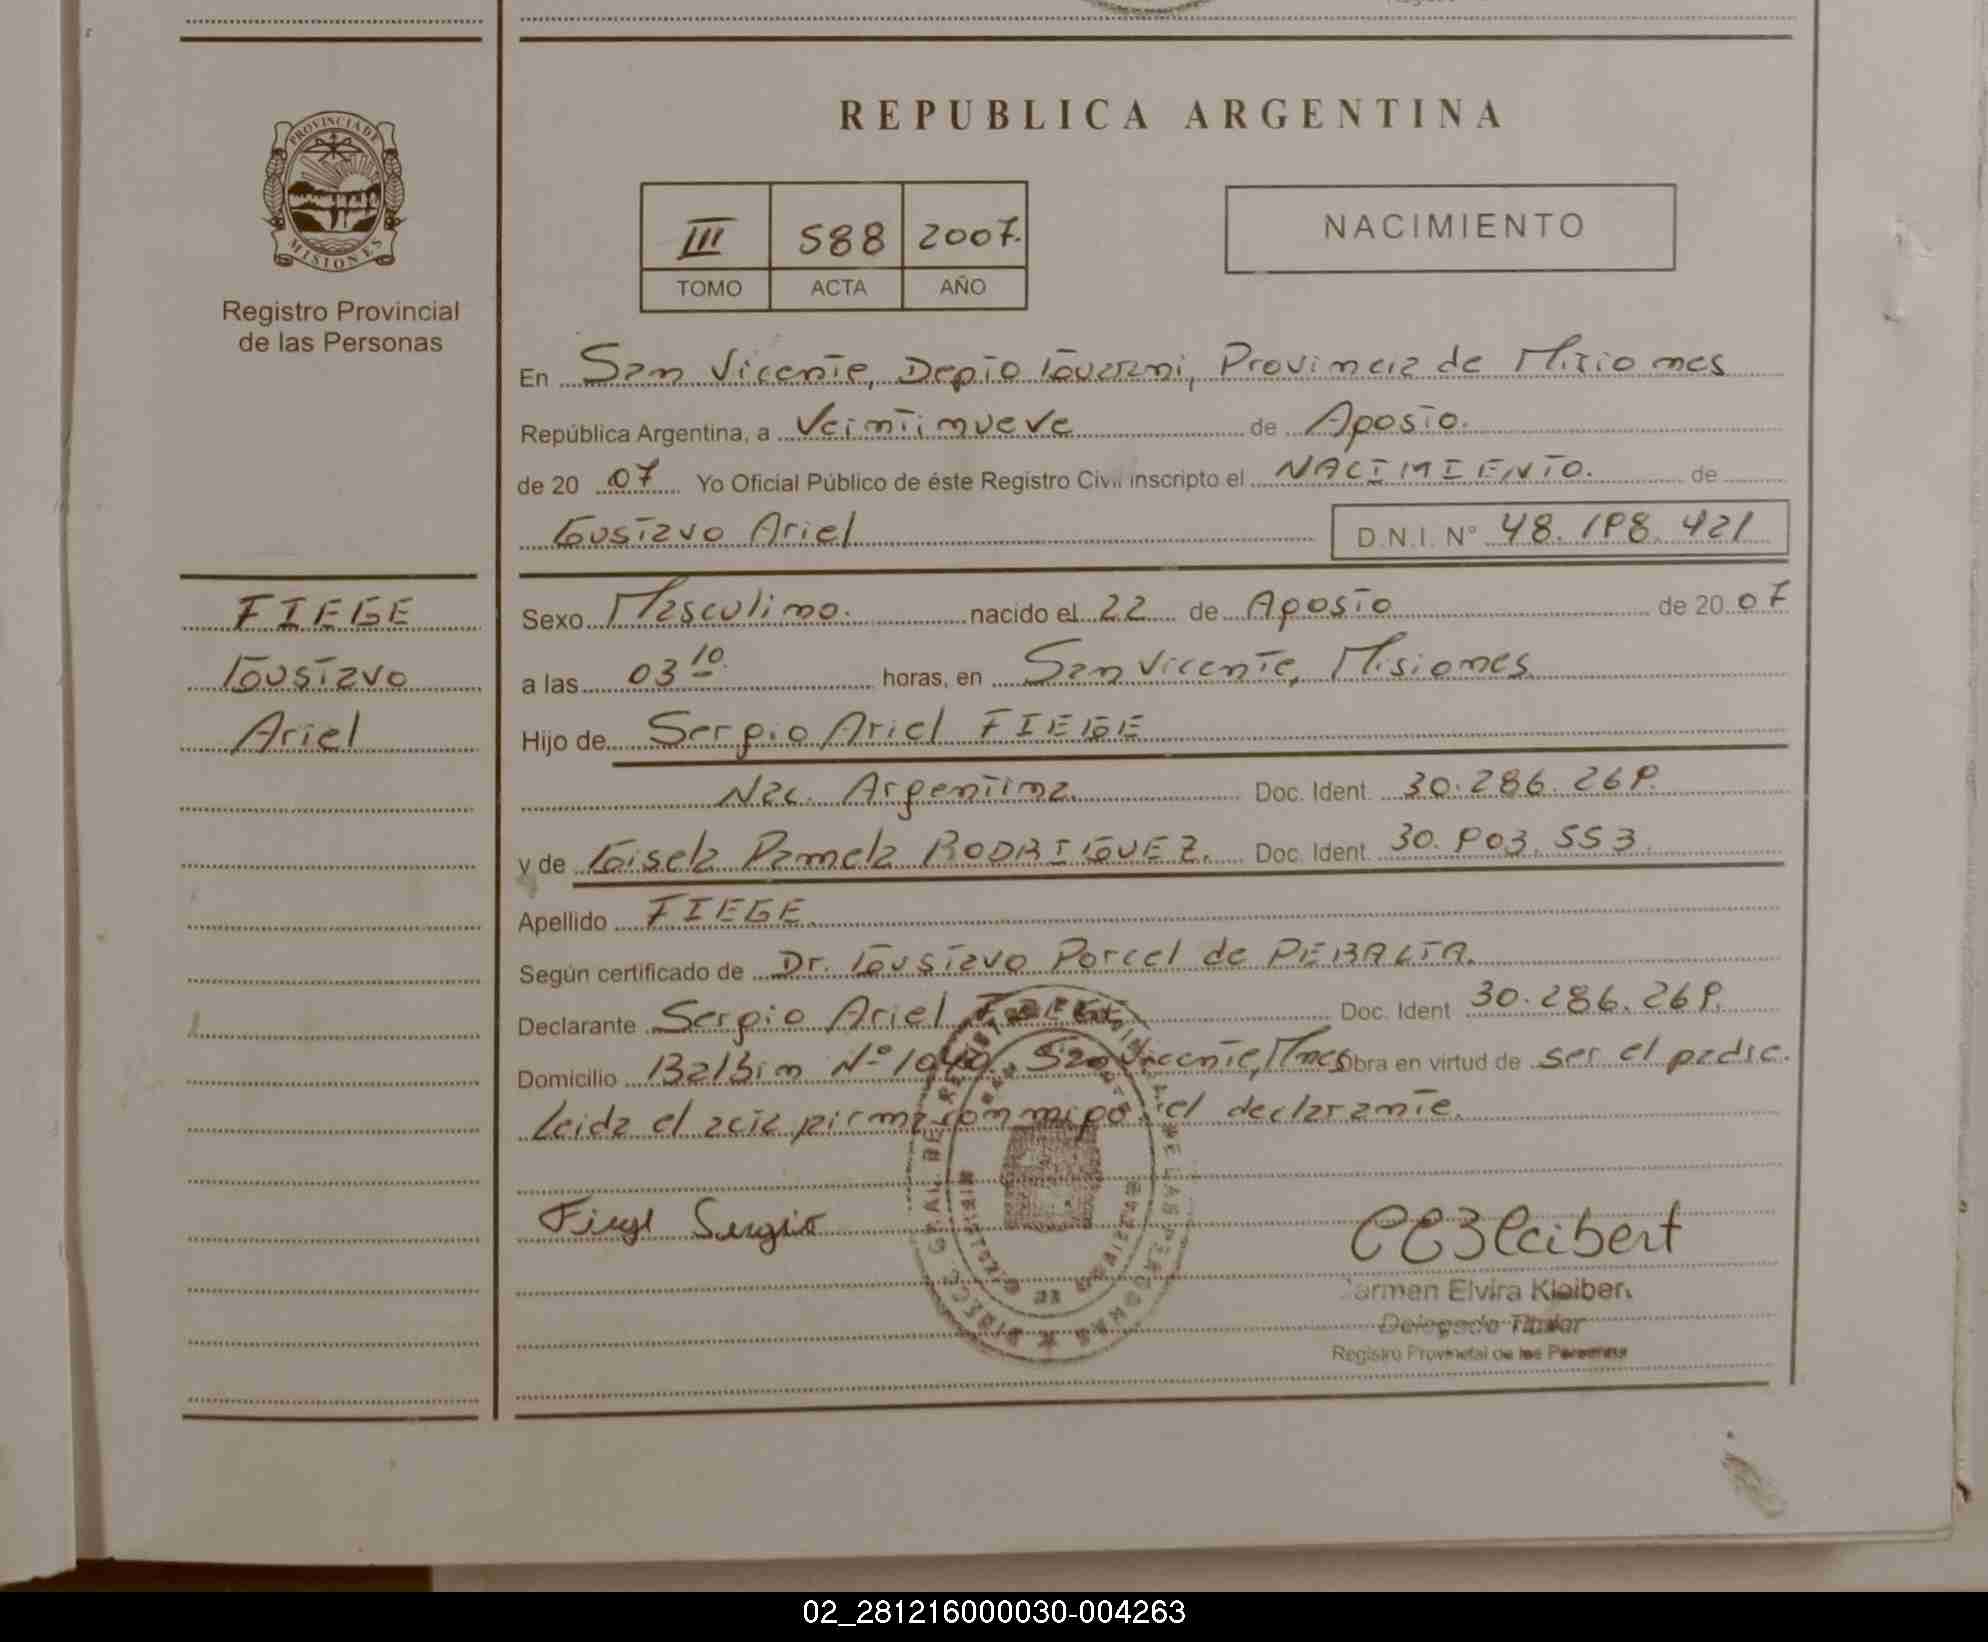 PROVINCIA DE
MISIONES
Registro Provincial
de las Personas
FIEGE
Gustavo
Ariel
REPUBLICA ARGENTINA
III 588 2007.
TOMO ACTA AÑO
NACIMIENTO
En San Vicente, Depto Guarani, Provincia de Misiones
República Argentina, a Veintinueve de Agosto.
de 20 07 Yo Oficial Público de éste Registro Civil inscripto el NACIMIENTO. de
Gustavo Ariel D.N.I. Nº 48.198.421
Sexo Masculino. nacido el 22 de Agosto de 20 07
a las 03 10 horas, en San Vicente, Misiones
Hijo de Sergio Ariel FIEGE
Nac. Argentina. Doc. Ident. 30.286.269.
y de Gisela Pamela RODRIGUEZ. Doc. Ident. 30.903.553.
Apellido FIEGE
Según certificado de Dr. Gustavo Porcel de PERALTA.
Declarante Sergio Ariel FIEGE Doc. Ident 30.286.269.
Domicilio Balbin Nº 1040. San Vicente, Mnes Obra en virtud de ser el padre.
Leida el acta firma conmigo el declarante.
Fiege Sergio
CEKleibert
Carmen Elvira Kleibert
Delegado Titular
Registro Provincial de las Personas
02_281216000030-004263